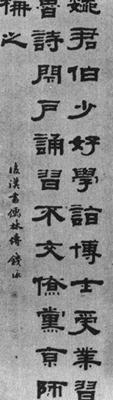 魏君伯少好學詣博士受業習
魯詩閉戶誦習不交僚黨京師
稱之
後漢書儒林傳 錢泳